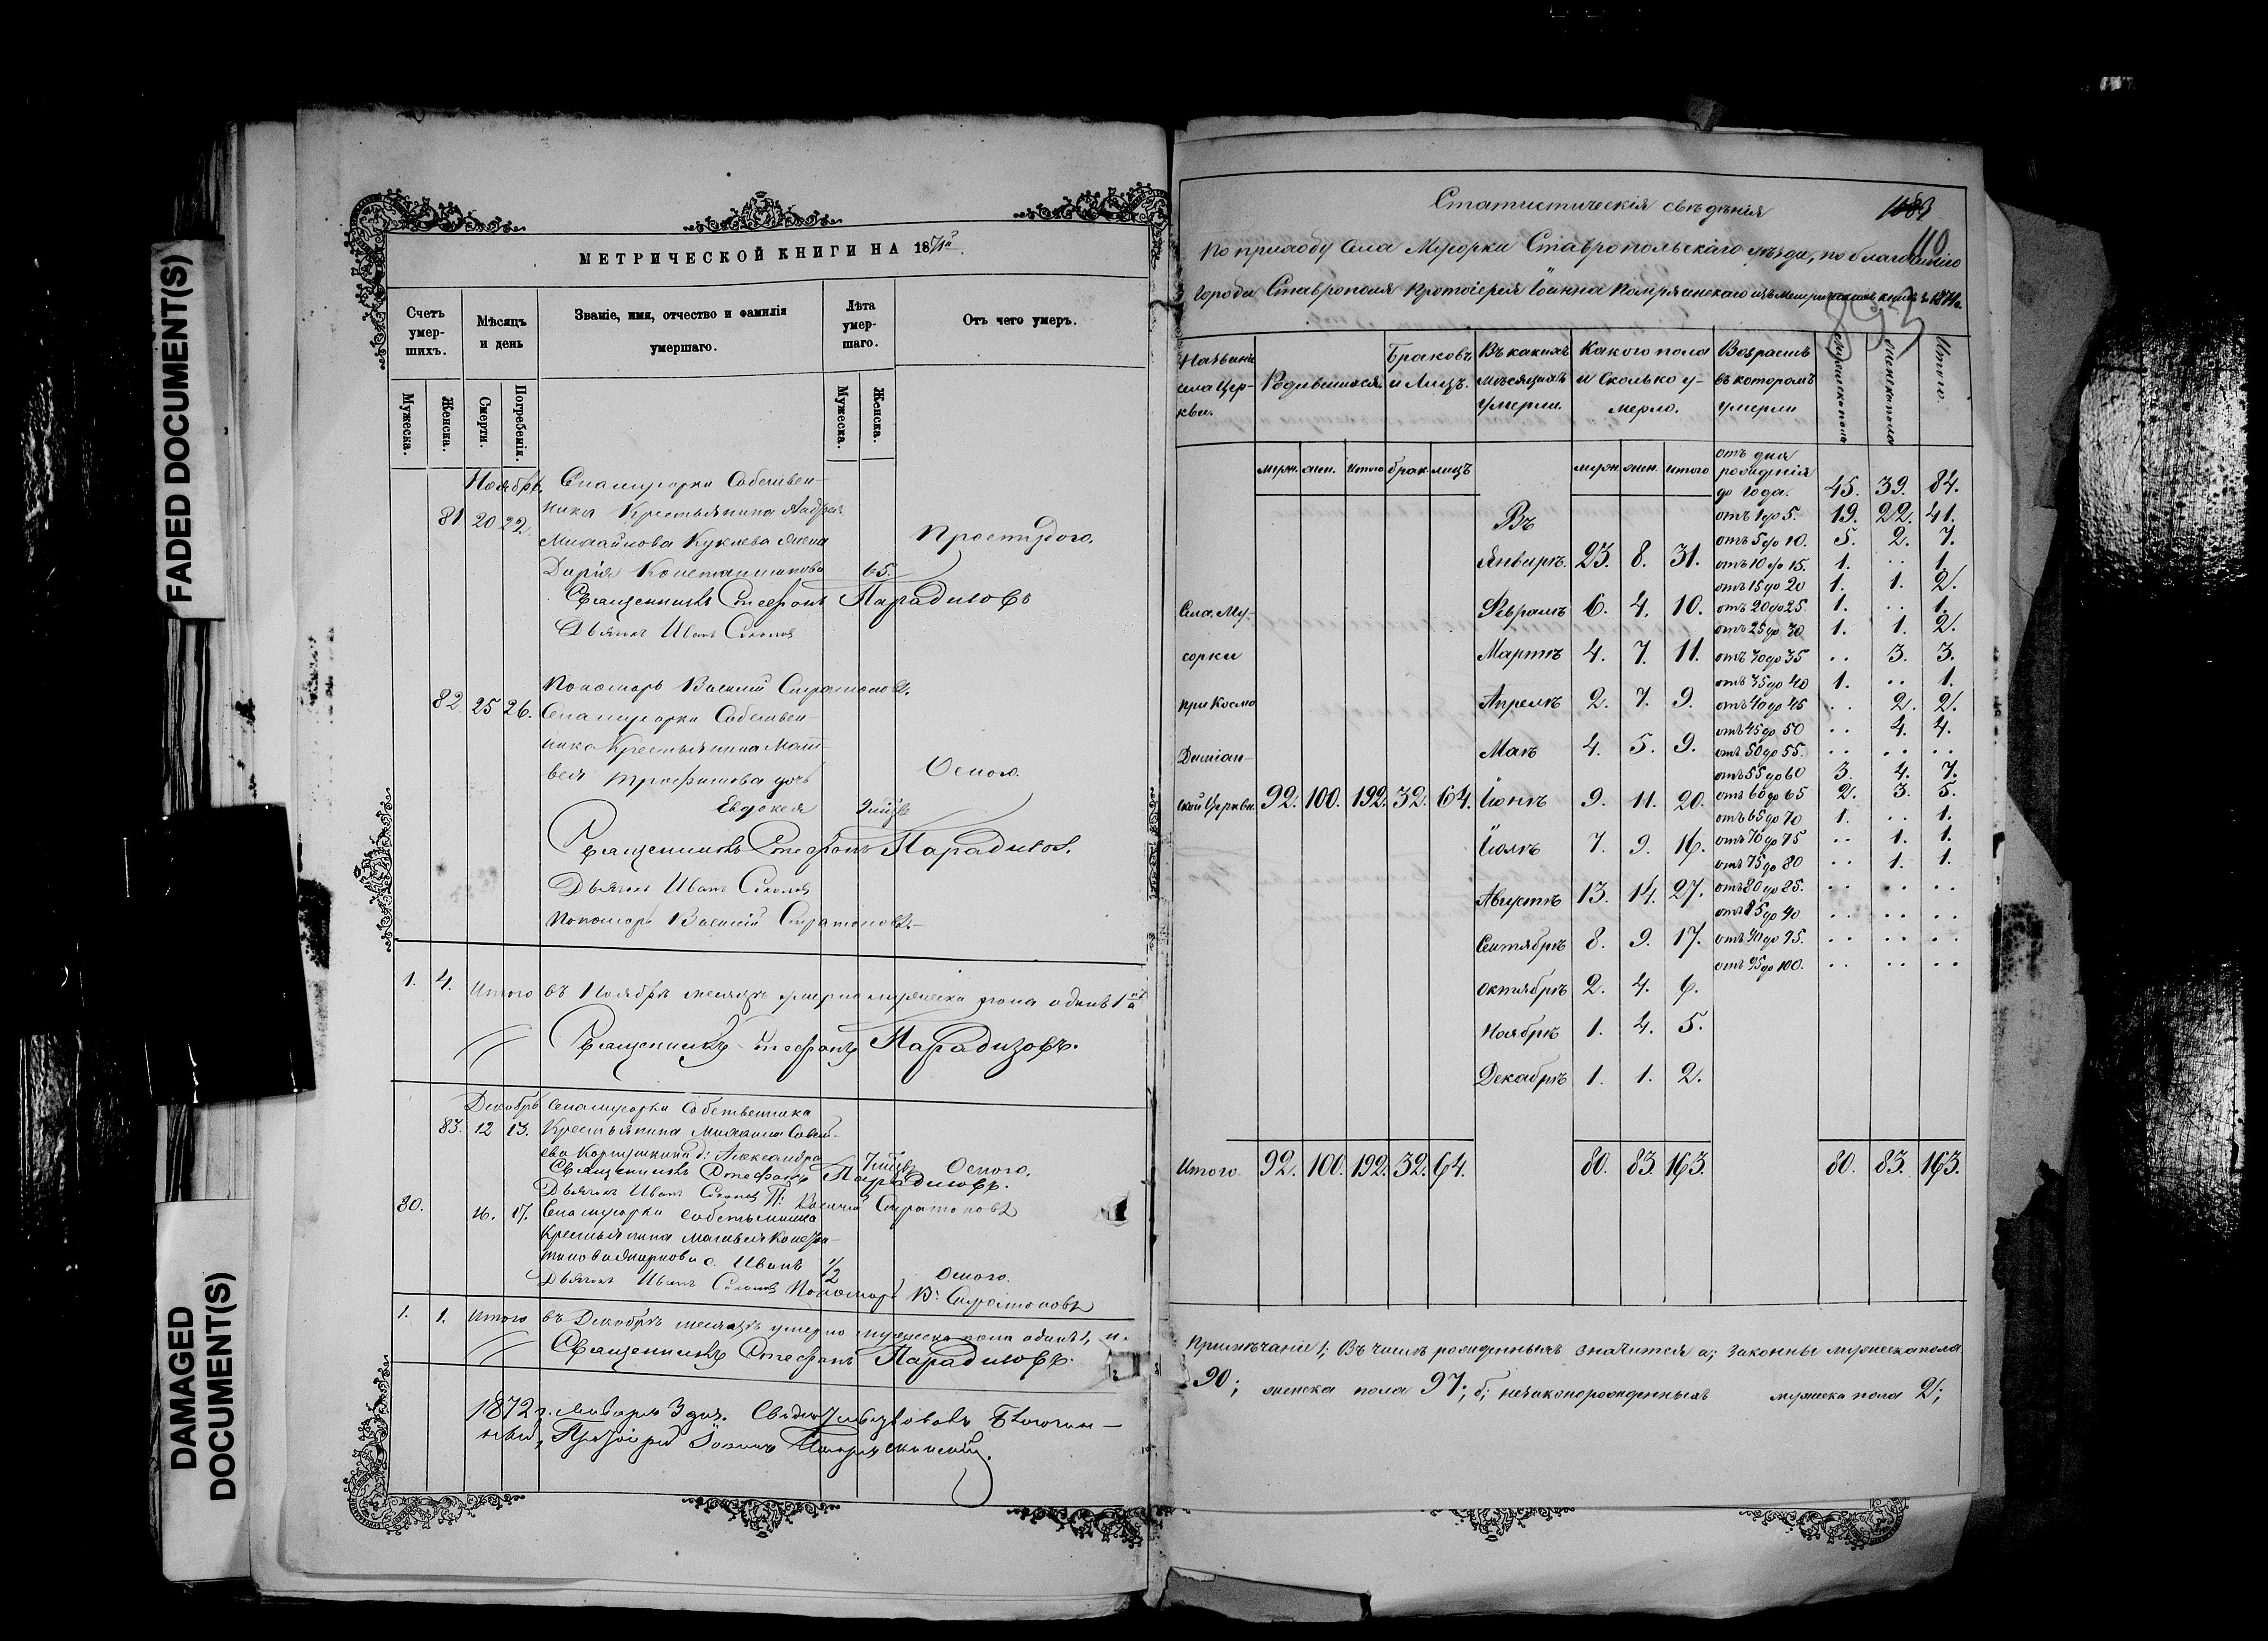 FADED DOCUMENT(S)
DAMAGED
DOCUMENT(S)
МЕТРИЧЕСКОЙ КНИГИ НА 1871
Счетъ умер-шихъ.
Мѣсяцъ и день
Званіе, имя, отчество и фамилія умершаго.
Лѣта умер-шаго.
Отъ чего умеръ.
Мужеска.
Женска.
Смерти.
Погребенія.
Мужеска.
Женска.
Ноябрь. Собствен-
ника Крестьянина Андрея
81. 20 22.
Михайлова Куклева жена Простудою.
Дарія Константинова 65.
Священникъ Стефанъ Парадизовъ
Дьячекъ Иванъ Соколов
Пономарь Василій Стратоновъ.
82 25 26. Собствен-
ника Крестьянина Мат-
вея Трофимова дочь Оспою.
Евдокея
Священникъ Стефанъ Парадизов.
Дьячекъ Иванъ Соколов
Пономарь Василій Стратоновъ.
1. 4. Итого въ Ноябрѣ месяцѣ умерло мужеска пола одинъ 1
Священникъ Стефанъ Парадизовъ.
Декабрь Собственника
83. 12 13. Крестьянина Михаила
д: Александра Оспою.
Священникъ Стефанъ Парадизовъ.
Дьячекъ Иванъ Соколов П: Василій Стратоновъ
80. 16. 17. Собственника
Крестьянина Матвея
с. Иванъ 1/2 Оспою.
Дьячекъ Иванъ Соколов Пономарь В: Стратоновъ
1. 1. Итого въ Декабрѣ месяцѣ умерло мужеска пола одинъ 1, и.
Священникъ Стефанъ Парадизовъ.
1872 г. Января 3 дня. Благочин-
ный, Іоаннъ
Статистическія свѣдѣнія
1083
110
По приходу Села Мусорки Ставропольскаго уѣзда, по благочинію
Города Ставрополя Протоіерея Іоанна 1871 г.
893
Названіе села Цер-кви.
Родившихся.
Браковъ и Лицъ.
Въ какихъ месяцахъ умерли.
Какого пола и сколько у-мерло.
Возрастъ въ которомъ умерли
Мужеска пола
Женска пола
Итого.
муж. жен. Итого брак. лицъ муж. жен. итого
отъ дня рожденія до года. 45. 39. 84.
отъ 1 до 5. 19. 22. 41.
отъ 5 до 10. 5. 2. 7.
отъ 10 до 15. 1. .. 1.
отъ 15 до 20 1. 1. 2.
отъ 20 до 25. 1. .. 1.
отъ 25 до 30 1. 1. 2.
отъ 30 до 35 .. 3. 3.
отъ 35 до 40 1. .. 1.
отъ 40 до 45 .. 2. 2.
отъ 45 до 50 .. 4. 4.
отъ 50 до 55. .. .. ..
отъ 55 до 60 3. 4. 7.
отъ 60 до 65 2. 3. 5.
отъ 65 до 70 1. .. 1.
отъ 70 до 75 .. 1. 1.
отъ 75 до 80 .. 1. 1.
отъ 80 до 85. .. .. ..
отъ 85 до 90 .. .. ..
отъ 90 до 95. .. .. ..
отъ 95 до 100. .. .. ..
Въ
Январѣ. 23. 8. 31.
Февралѣ 6. 4. 10.
Мартѣ 4. 7. 11.
Апрелѣ 2. 7. 9.
Маѣ 4. 5. 9.
Іюнѣ 9. 11. 20.
Іюлѣ 7. 9. 16.
Августѣ 13. 14. 27.
Сентябрѣ 8. 9. 17.
Октябрѣ 2. 4. 6.
Ноябрѣ 1. 4. 5.
Декабрѣ 1. 1. 2.
Села Му-
сорки
при Космо
Дамиан-
ской Церкви. 92. 100. 192. 32. 64.
Итого. 92. 100. 192. 32. 64. 80. 83. 163. 80. 83. 163.
Примѣчаніе 1; Въ числѣ рожденныхъ значится а; законны мужеска пола
90; женска пола 97; б; незаконорожденныхъ мужеска пола 2;